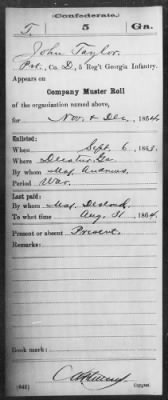 Confederate.
T. 5 Ga.
John Taylor
Pvt., Co. D, 5 Reg't Georgia Infantry.
Appears on
Company Muster Roll
of the organization named above,
for Nov. & Dec., 1864.
Enlisted:
When Sept. 6, 1863.
Where Decatur, Ga.
By whom Maj. Andrews
Period War.
Last paid:
By whom Maj.
To what time Aug. 31, 1864.
Present or absent Present.
Remarks:
Book mark:
(642) Copyist.